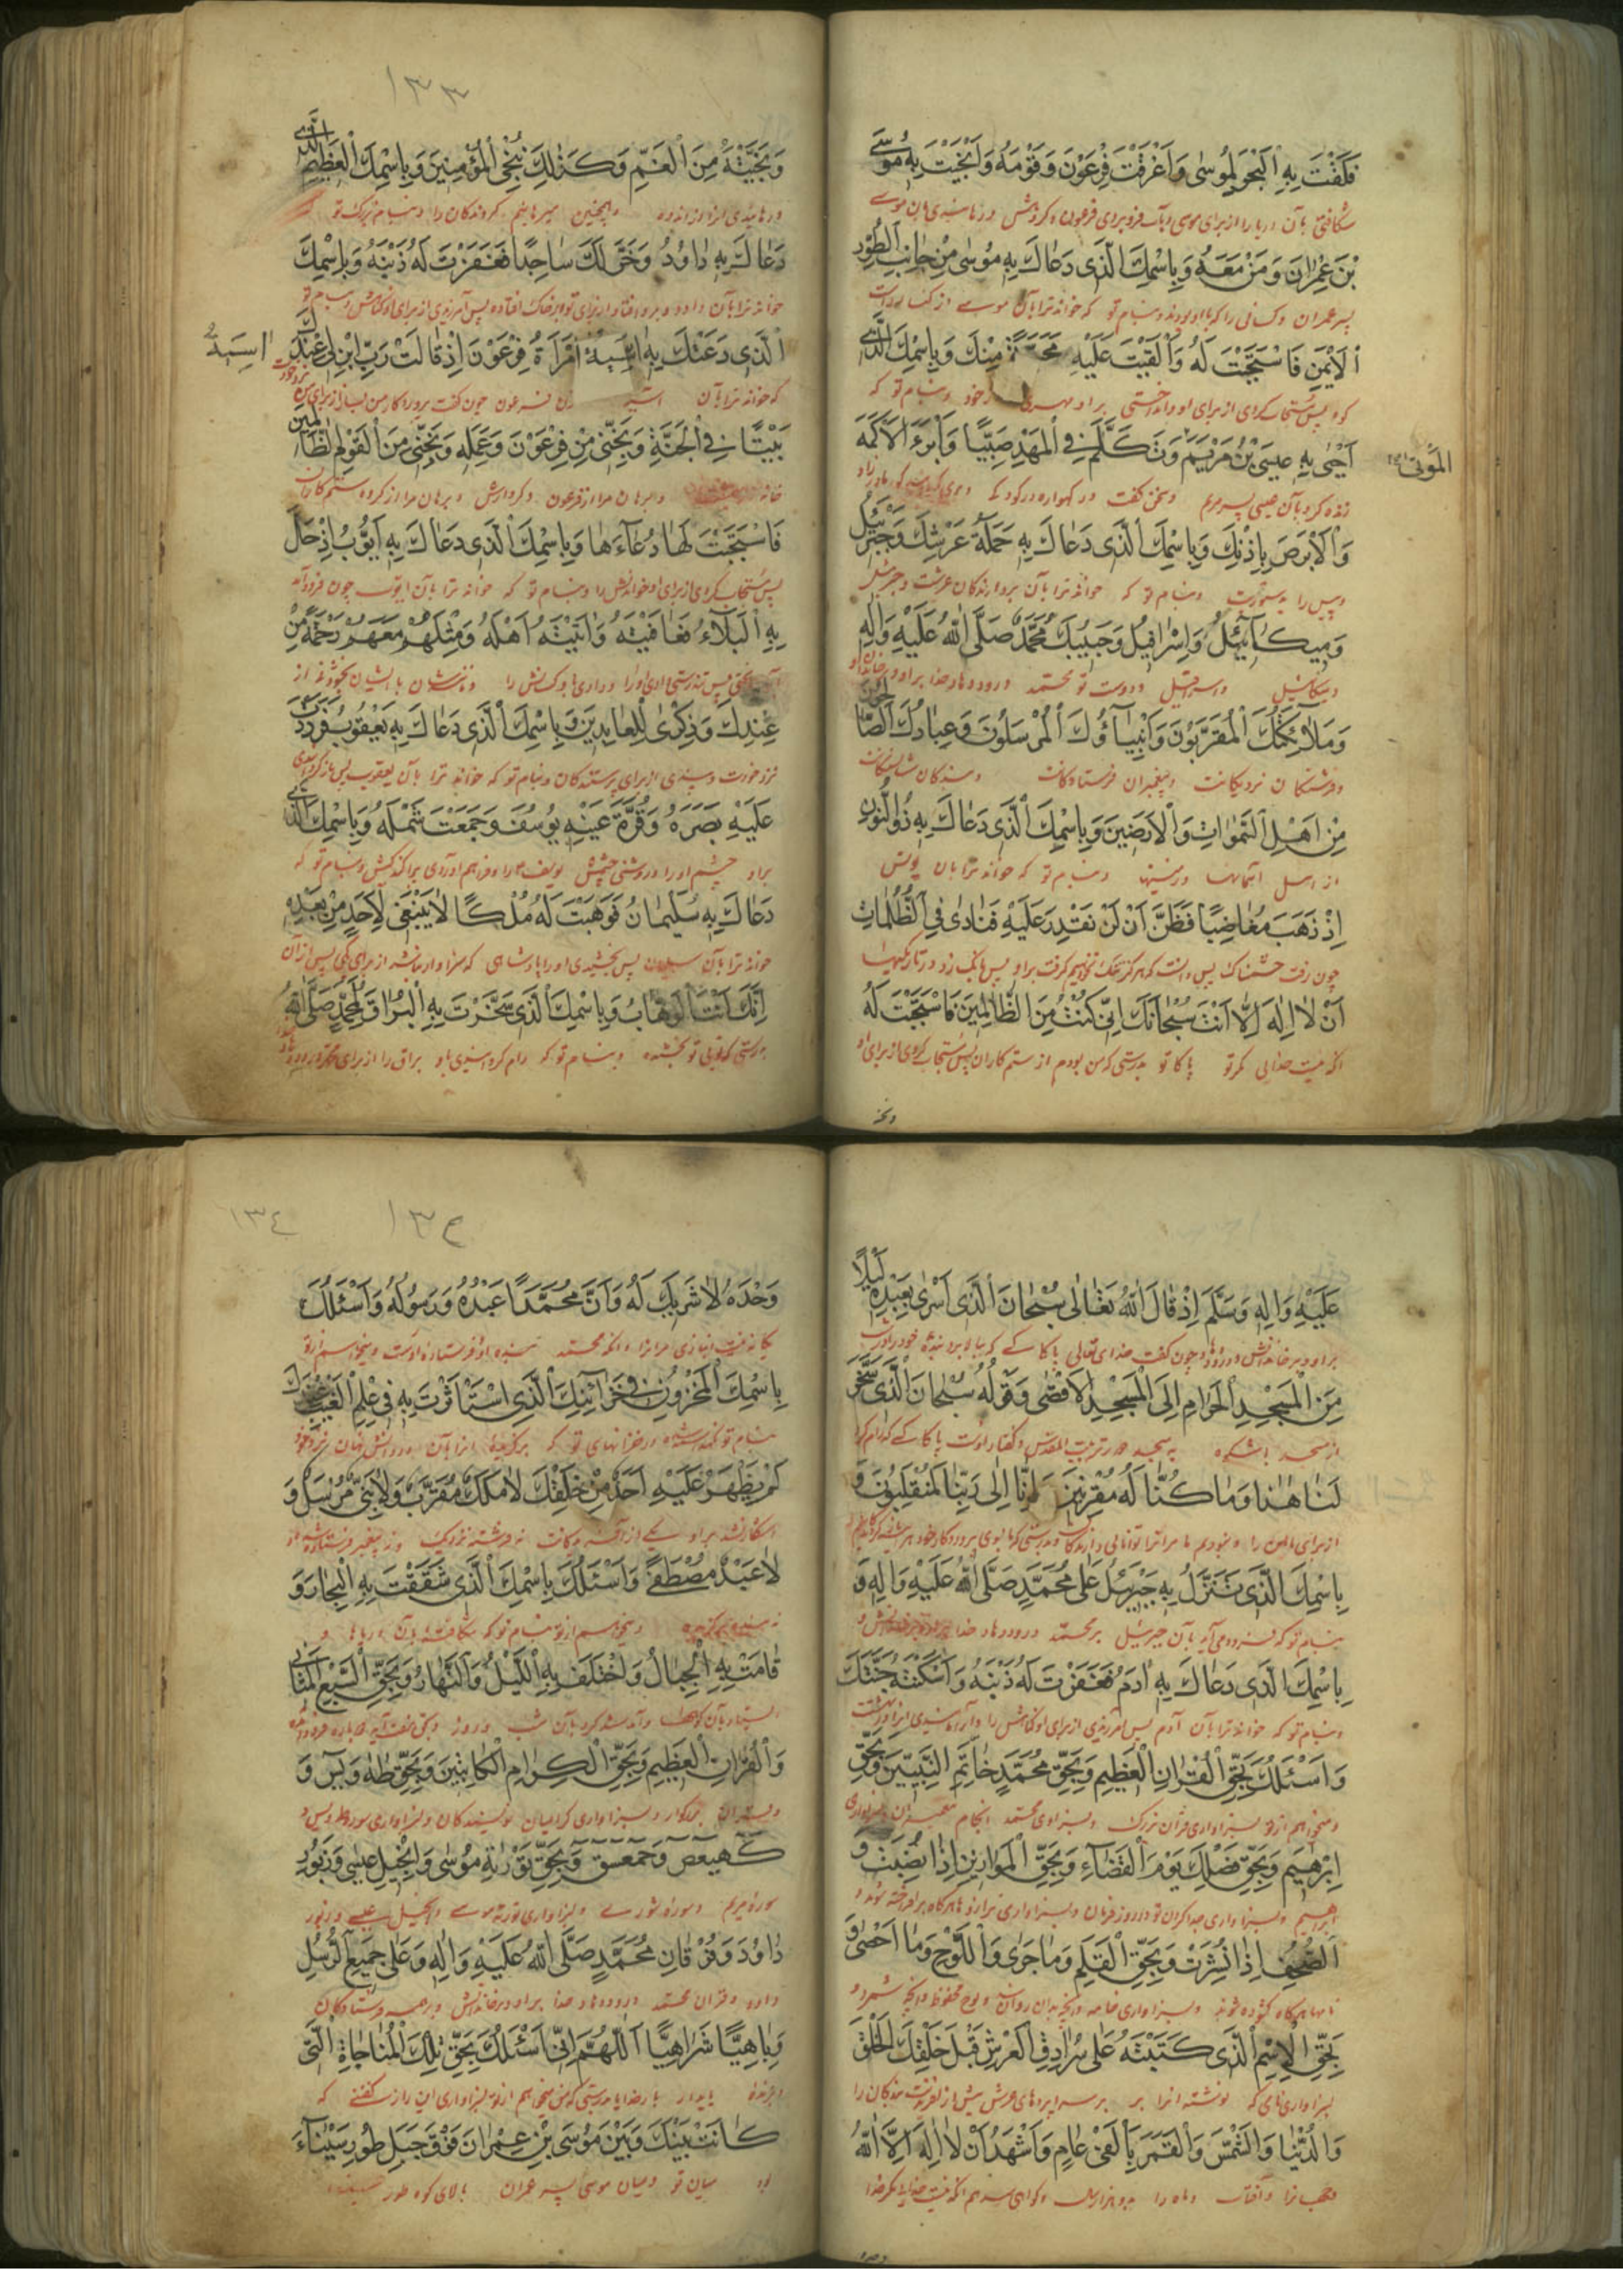 فَلَقْتَ بِهِ الْبَحْرَ لِمُوسٰى وَاَغْرَقْتَ فِرْعَوْنَ وَقَوْمَهُ وَاَنْجَيْتَ بِهِ مُوسَى
شکافتی بآن دریا را از برای موسی و بآب فرو بردی فرعون و کروهش و رهانیدی بآن موسی
بْنَ عِمْرٰانَ وَمَنْ مَعَهُ وَبِاسْمِكَ الَّذى دَعٰاكَ بِهِ مُوسٰى مِنْ جٰانِبِ الطُّورِ
پسر عمران و کسانی را که با او بودند و بنام تو که خواند ترا بآن موسی از کنار
الْاَيْمَنِ فَاسْتَجَبْتَ لَهُ وَاَلْقَيْتَ عَلَيْهِ مَحَبَّةً مِنْكَ وَبِاسْمِكَ الَّذى
پس مستجاب کردی از برای او و انداختی بر او از خود و بنام تو که
اَحْيٰى بِهِ عيسَى بْنُ مَرْيَمَ وَتَكَلَّمَ فِى الْمَهْدِ صَبِيًّا وَاَبْرَءَ الْاَكْمَهَ
الْمَوْتٰى
زنده کرد بآن عیسی پسر مریم و سخن کفت در کهواره در کودکی
وَالْاَبْرَصَ بِاِذْنِكَ وَبِاسْمِكَ الَّذى دَعٰاكَ بِهِ حَمَلَةُ عَرْشِكَ وَجَبْرَئيلُ
و پیس را بدستوریت و بنام تو که خواند ترا بآن بردارندکان عرشت و جبرئیل
وَميكٰآئيلُ وَاِسْرٰافيلُ وَحَبيبُكَ مُحَمَّدٌ صَلَّى اللّٰهُ عَلَيْهِ وَاٰلِهِ
و میکائیل و اسرافیل و دوست تو محمد درودهاد خدا بر او و بر خاندان او
وَمَلآئِكَتُكَ الْمُقَرَّبُونَ وَاَنْبِيٰآؤُكَ الْمُرْسَلُونَ وَعِبٰادُكَ الصّٰالِحُونَ
و فرشتکان نزدیکانت و پیغمبران فرستادکانت و بندکان شایستکانت
مِنْ اَهْلِ السَّمٰوٰاتِ وَالْاَرَضينَ وَبِاسْمِكَ الَّذى دَعٰاكَ بِهِ ذُوالنُّونِ
از اهل آسمانها و زمینها و بنام تو که خواند ترا بآن یونس
اِذْ ذَهَبَ مُغٰاضِبًا فَظَنَّ اَنْ لَنْ نَقْدِرَ عَلَيْهِ فَنٰادٰى فِى الظُّلُمٰاتِ
چون رفت خشمناک پس دانست که هرکز تنک نخواهیم کرفت بر او پس بانک زد در تاریکیها
اَنْ لٰا اِلٰهَ اِلّٰا اَنْتَ سُبْحٰانَكَ اِنّى كُنْتُ مِنَ الظّٰالِمينَ فَاسْتَجَبْتَ لَهُ
اکه نیست خدایی مکر تو پاکا تو بدرستی که من بودم از ستم کاران پس مستجاب کردی از برای او
ونجّ
١٣٣
وَنَجَّيْتَهُ مِنَ الْغَمِّ وَكَذٰلِكَ نُنْجِى الْمُؤْمِنينَ وَبِاسْمِكَ الْعَظيمِ الَّذى
و رهانیدی او را از اندوه و همچنین میرهانیم کروندکان را و بنام بزرک تو
دَعٰاكَ بِهِ دٰاوُدُ وَخَرَّ لَكَ سٰاجِدًا فَغَفَرْتَ لَهُ ذَنْبَهُ وَبِاسْمِكَ
خواند ترا بآن داود و برو افتاد از برای تو پس آمرزیدی از برای او کناهش و بنام تو
الَّذى دَعَتْكَ بِهِ اٰسِيَةُ امْرَاَةُ فِرْعَوْنَ اِذْ قٰالَتْ رَبِّ ابْنِ لى عِنْدَكَ
اٰسِيَةُ
که خواند ترا بآن آسیه زن فرعون چون کفت پروردکار من بساز از برای من نزد خودت
بَيْتًا فِى الْجَنَّةِ وَنَجِّنى مِنْ فِرْعَوْنَ وَعَمَلِهِ وَنَجِّنى مِنَ الْقَوْمِ الظّٰالِمينَ
خانه و برهان مرا از فرعون و کردارش و برهان مرا از کروه ستم کاران
فَاسْتَجَبْتَ لَهٰا دُعٰآءَهٰا وَبِاسْمِكَ الَّذى دَعٰاكَ بِهِ اَيُّوبُ اِذْ حَلَّ
پس مستجاب کردی از برای او خواندنش را و بنام تو که خواند ترا بآن ایوب چون فرود آمد
بِهِ الْبَلٰآءُ فَعٰافَيْتَهُ وَاٰتَيْتَهُ اَهْلَهُ وَمِثْلَهُمْ مَعَهُمْ رَحْمَةً مِنْ
پس تندرستی دادی او را و دادی باو کسانش را و مانندشان با ایشان بخشش از
عِنْدِكَ وَذِكْرٰى لِلْعٰابِدينَ وَبِاسْمِكَ الَّذى دَعٰاكَ بِهِ يَعْقُوبُ فَرَدَدْتَ
نزد خودت و پندی از برای پرستندکان و بنام تو که خواند ترا بآن یعقوب پس باز کردانیدی
عَلَيْهِ بَصَرَهُ وَقُرَّةَ عَيْنِهِ يُوسُفَ وَجَمَعْتَ شَمْلَهُ وَبِاسْمِكَ الَّذى
بر او چشم او را و روشنی چشمش یوسف را و فراهم آوردی پراکندکیش و بنام تو که
دَعٰاكَ بِهِ سُلَيْمٰانُ فَوَهَبْتَ لَهُ مُلْكًا لٰا يَنْبَغى لِاَحَدٍ مِنْ بَعْدِهِ
خواند ترا بآن سلیمان پس بخشیدی او را پادشاهی که سزاوار نباشد از برای یکی پس از آن
اِنَّكَ اَنْتَ الْوَهّٰابُ وَبِاسْمِكَ الَّذى سَخَّرْتَ بِهِ الْبُرٰاقَ لِمُحَمَّدٍ صَلَّى اللّٰهُ
بدرستی که تویی تو بخشنده و بنام تو که رام کردانیدی باو براق را از برای محمد
عَلَيْهِ وَاٰلِهِ وَسَلَّمَ اِذْ قٰالَ اللّٰهُ تَعٰالٰى سُبْحٰانَ الَّذى اَسْرٰى بِعَبْدِهِ لَيْلًا
بر او و بر خاندانش و درود چون کفت خدای تعالی پاکا کسی که ببالا برد بنده خود را در شب
مِنَ الْمَسْجِدِ الْحَرٰامِ اِلَى الْمَسْجِدِ الْاَقْصٰى وَقَوْلُهُ سُبْحٰانَ الَّذى سَخَّرَ
از مسجد باشکوه به مسجد دورتر بیت المقدس و کفتار اوست پاکا کسی که رام کرد
لَنٰا هٰذٰا وَمٰا كُنّٰا لَهُ مُقْرِنينَ وَاِنّٰا اِلٰى رَبِّنٰا لَمُنْقَلِبُونَ وَ
از برای ما این را و نبودیم ما مر آنرا توانایی دارندکان و بدرستی که ما بسوی پروردکار خود
بِاسْمِكَ الَّذى تَنَزَّلَ بِهِ جَبْرَئيلُ عَلٰى مُحَمَّدٍ صَلَّى اللّٰهُ عَلَيْهِ وَاٰلِهِ وَ
بنام تو که فرود می آید بآن جبرئیل بر محمد درودهاد خدا
بِاسْمِكَ الَّذى دَعٰاكَ بِهِ اٰدَمُ فَغَفَرْتَ لَهُ ذَنْبَهُ وَاَسْكَنْتَهُ جَنَّتَكَ
و بنام تو که خواند ترا بآن آدم پس آمرزیدی از برای او کناهش را و آرامانیدی او را در بهشتت
وَاَسْئَلُكَ بِحَقِّ الْقُرْاٰنِ الْعَظيمِ وَبِحَقِّ مُحَمَّدٍ خٰاتَمِ النَّبِيّينَ وَبِحَقِّ
و میخواهم از تو بسزاواری قرآن بزرک و بسزاواری محمد انجام پیغمبران و بسزاواری
اِبْرٰهيمَ وَبِحَقِّ فَضْلِكَ يَوْمَ الْقَضٰآءِ وَبِحَقِّ الْمَوٰازينِ اِذٰا نُصِبَتْ وَ
ابراهیم و بسزاواری جدا کردن تو در روز فرمان و بسزاواری ترازوها هرکاه برافراخته شوند و
الصُّحُفِ اِذٰا نُشِرَتْ وَبِحَقِّ الْقَلَمِ وَمٰا جَرٰى وَاللَّوْحِ وَمٰا اَحْصٰى وَ
نامها هرکاه کشوده شوند و بسزاواری خامه و آنچه بدان روان شد و لوح محفوظ و آنچه شمرد و
بِحَقِّ الْاِسْمِ الَّذى كَتَبْتَهُ عَلٰى سُرٰادِقِ الْعَرْشِ قَبْلَ خَلْقِكَ الْخَلْقَ
بسزاواری نامی که نوشته آنرا بر سراپردهای عرش پیش از آفریدنت بندکان را
وَالدُّنْيٰا وَالشَّمْسَ وَالْقَمَرَ بِاَلْفَىْ عٰامٍ وَاَشْهَدُ اَنْ لٰا اِلٰهَ اِلَّا اللّٰهُ
و جهان را و آفتاب و ماه را بدو هزار سال و کواهی میدهم اکه نیست خدایی مکر خدا
وحده
١٣٤
١٣٤
وَحْدَهُ لٰا شَريكَ لَهُ وَاَنَّ مُحَمَّدًا عَبْدُهُ وَرَسُولُهُ وَاَسْئَلُكَ
یکانه نیست انبازی مر او را و آنکه محمد بنده او و فرستاده اوست و میخواهم از تو
بِاسْمِكَ الْمَخْزُونِ فى خَزٰآئِنِكَ الَّذى اسْتَاْثَرْتَ بِهِ فى عِلْمِ الْغَيْبِ عِنْدَكَ
بنام تو در خزانهای تو که برکزیده آنرا بآن در دانش نهان نزد خود
لَمْ يَظْهَرْ عَلَيْهِ اَحَدٌ مِنْ خَلْقِكَ لٰا مَلَكٌ مُقَرَّبٌ وَلٰا نَبِىٌّ مُرْسَلٌ وَ
آشکار نشد بر او یکی از نه فرشته نزدیک و نه پیغمبر فرستاده شده و
لٰا عَبْدٌ مُصْطَفًى وَاَسْئَلُكَ بِاسْمِكَ الَّذى شَقَقْتَ بِهِ الْبِحٰارَ وَ
نه بنده برکزیده و میخواهم از تو بنام تو که شکافته بآن دریاها و
قٰامَتْ بِهِ الْجِبٰالُ وَاخْتَلَفَ بِهِ اللَّيْلُ وَالنَّهٰارُ وَبِحَقِّ السَّبْعِ الْمَثٰانى
ایستاد بآن کوهها و آمد شد کرد بآن شب و روز و بحق هفت آیه
وَالْقُرْاٰنِ الْعَظيمِ وَبِحَقِّ الْكِرٰامِ الْكٰاتِبينَ وَبِحَقِّ طٰهٰ وَيٰسٓ وَ
و قرآن بزرکوار و بسزاواری کرامیان نویسندکان و بسزاواری سوره طه و یس و
كٓهٰيٰعٓصٓ وَحٰمٓعٓسٓقٓ وَبِحَقِّ تَوْرٰيةِ مُوسٰى وَاِنْجيلِ عيسٰى وَزَبُورِ
سوره مریم و سوره شوری و بسزاواری توریة موسی و انجیل عیسی و زبور
دٰاوُدَ وَفُرْقٰانِ مُحَمَّدٍ صَلَّى اللّٰهُ عَلَيْهِ وَاٰلِهِ وَعَلٰى جَميعِ الرُّسُلِ
داود و قرآن محمد درودهاد خدا بر او و بر خاندانش و بر همه فرستادکان
وَبِاٰهِيًّا شَرٰاهِيًّا اَللّٰهُمَّ اِنّى اَسْئَلُكَ بِحَقِّ تِلْكَ الْمُنٰاجٰاةِ الَّتى
پایدار بار خدایا بدرستی که من میخواهم از تو بسزاواری این راز کفتنی که
كٰانَتْ بَيْنَكَ وَبَيْنَ مُوسَى بْنِ عِمْرٰانَ فَوْقَ جَبَلِ طُورِ سَيْنٰآءَ
بود میان تو و میان موسی پسر عمران بالای کوه طور سینا